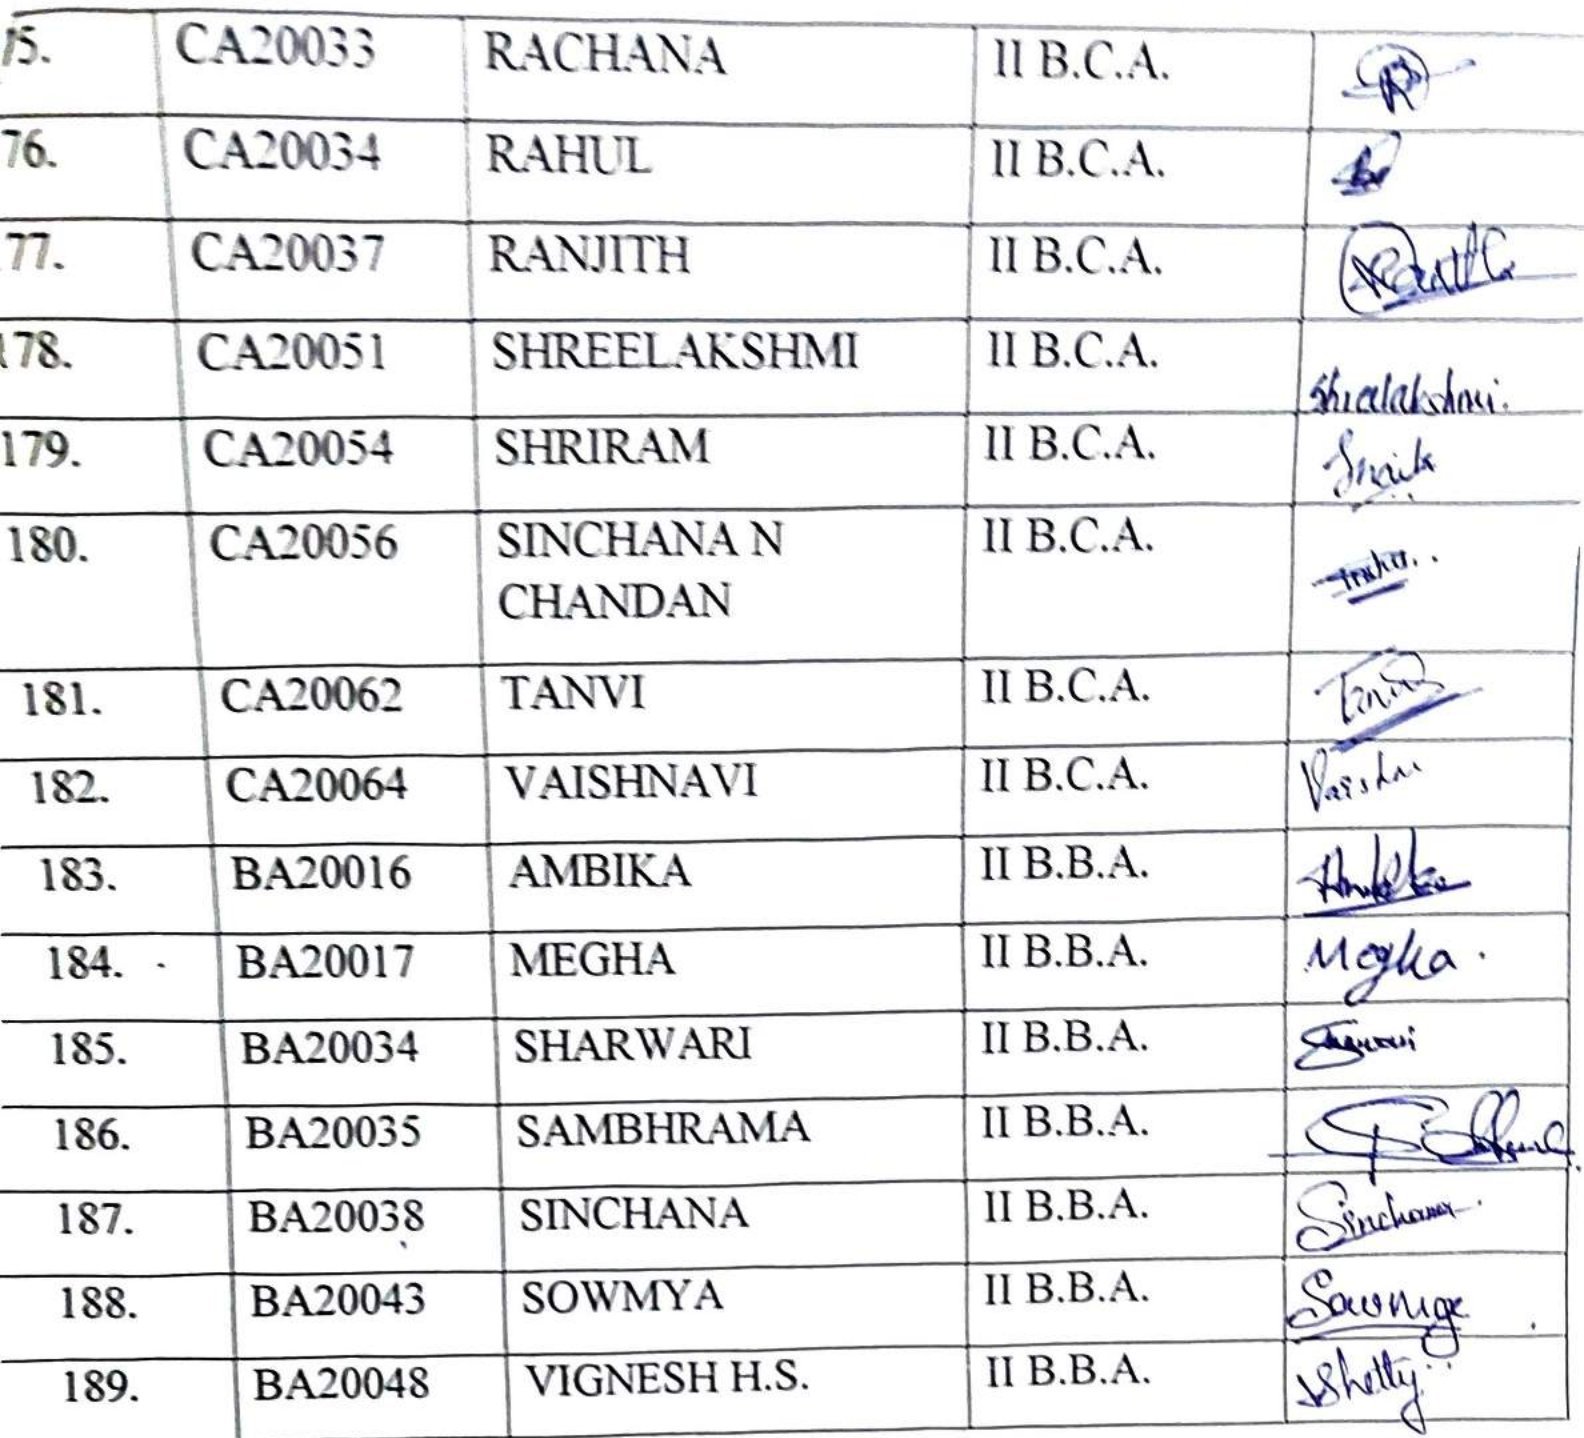 75. CA20033 RACHANA II B.C.A.
76. CA20034 RAHUL II B.C.A.
77. CA20037 RANJITH II B.C.A.
178. CA20051 SHREELAKSHMI II B.C.A. Shreelakshmi.
179. CA20054 SHRIRAM II B.C.A.
180. CA20056 SINCHANA N II B.C.A.
CHANDAN
181. CA20062 TANVI II B.C.A.
182. CA20064 VAISHNAVI II B.C.A.
183. BA20016 AMBIKA II B.B.A.
184. BA20017 MEGHA II B.B.A. Megha.
185. BA20034 SHARWARI II B.B.A.
186. BA20035 SAMBHRAMA II B.B.A.
187. BA20038 SINCHANA II B.B.A. Sinchana.
188. BA20043 SOWMYA II B.B.A.
189. BA20048 VIGNESH H.S. II B.B.A. Shetty